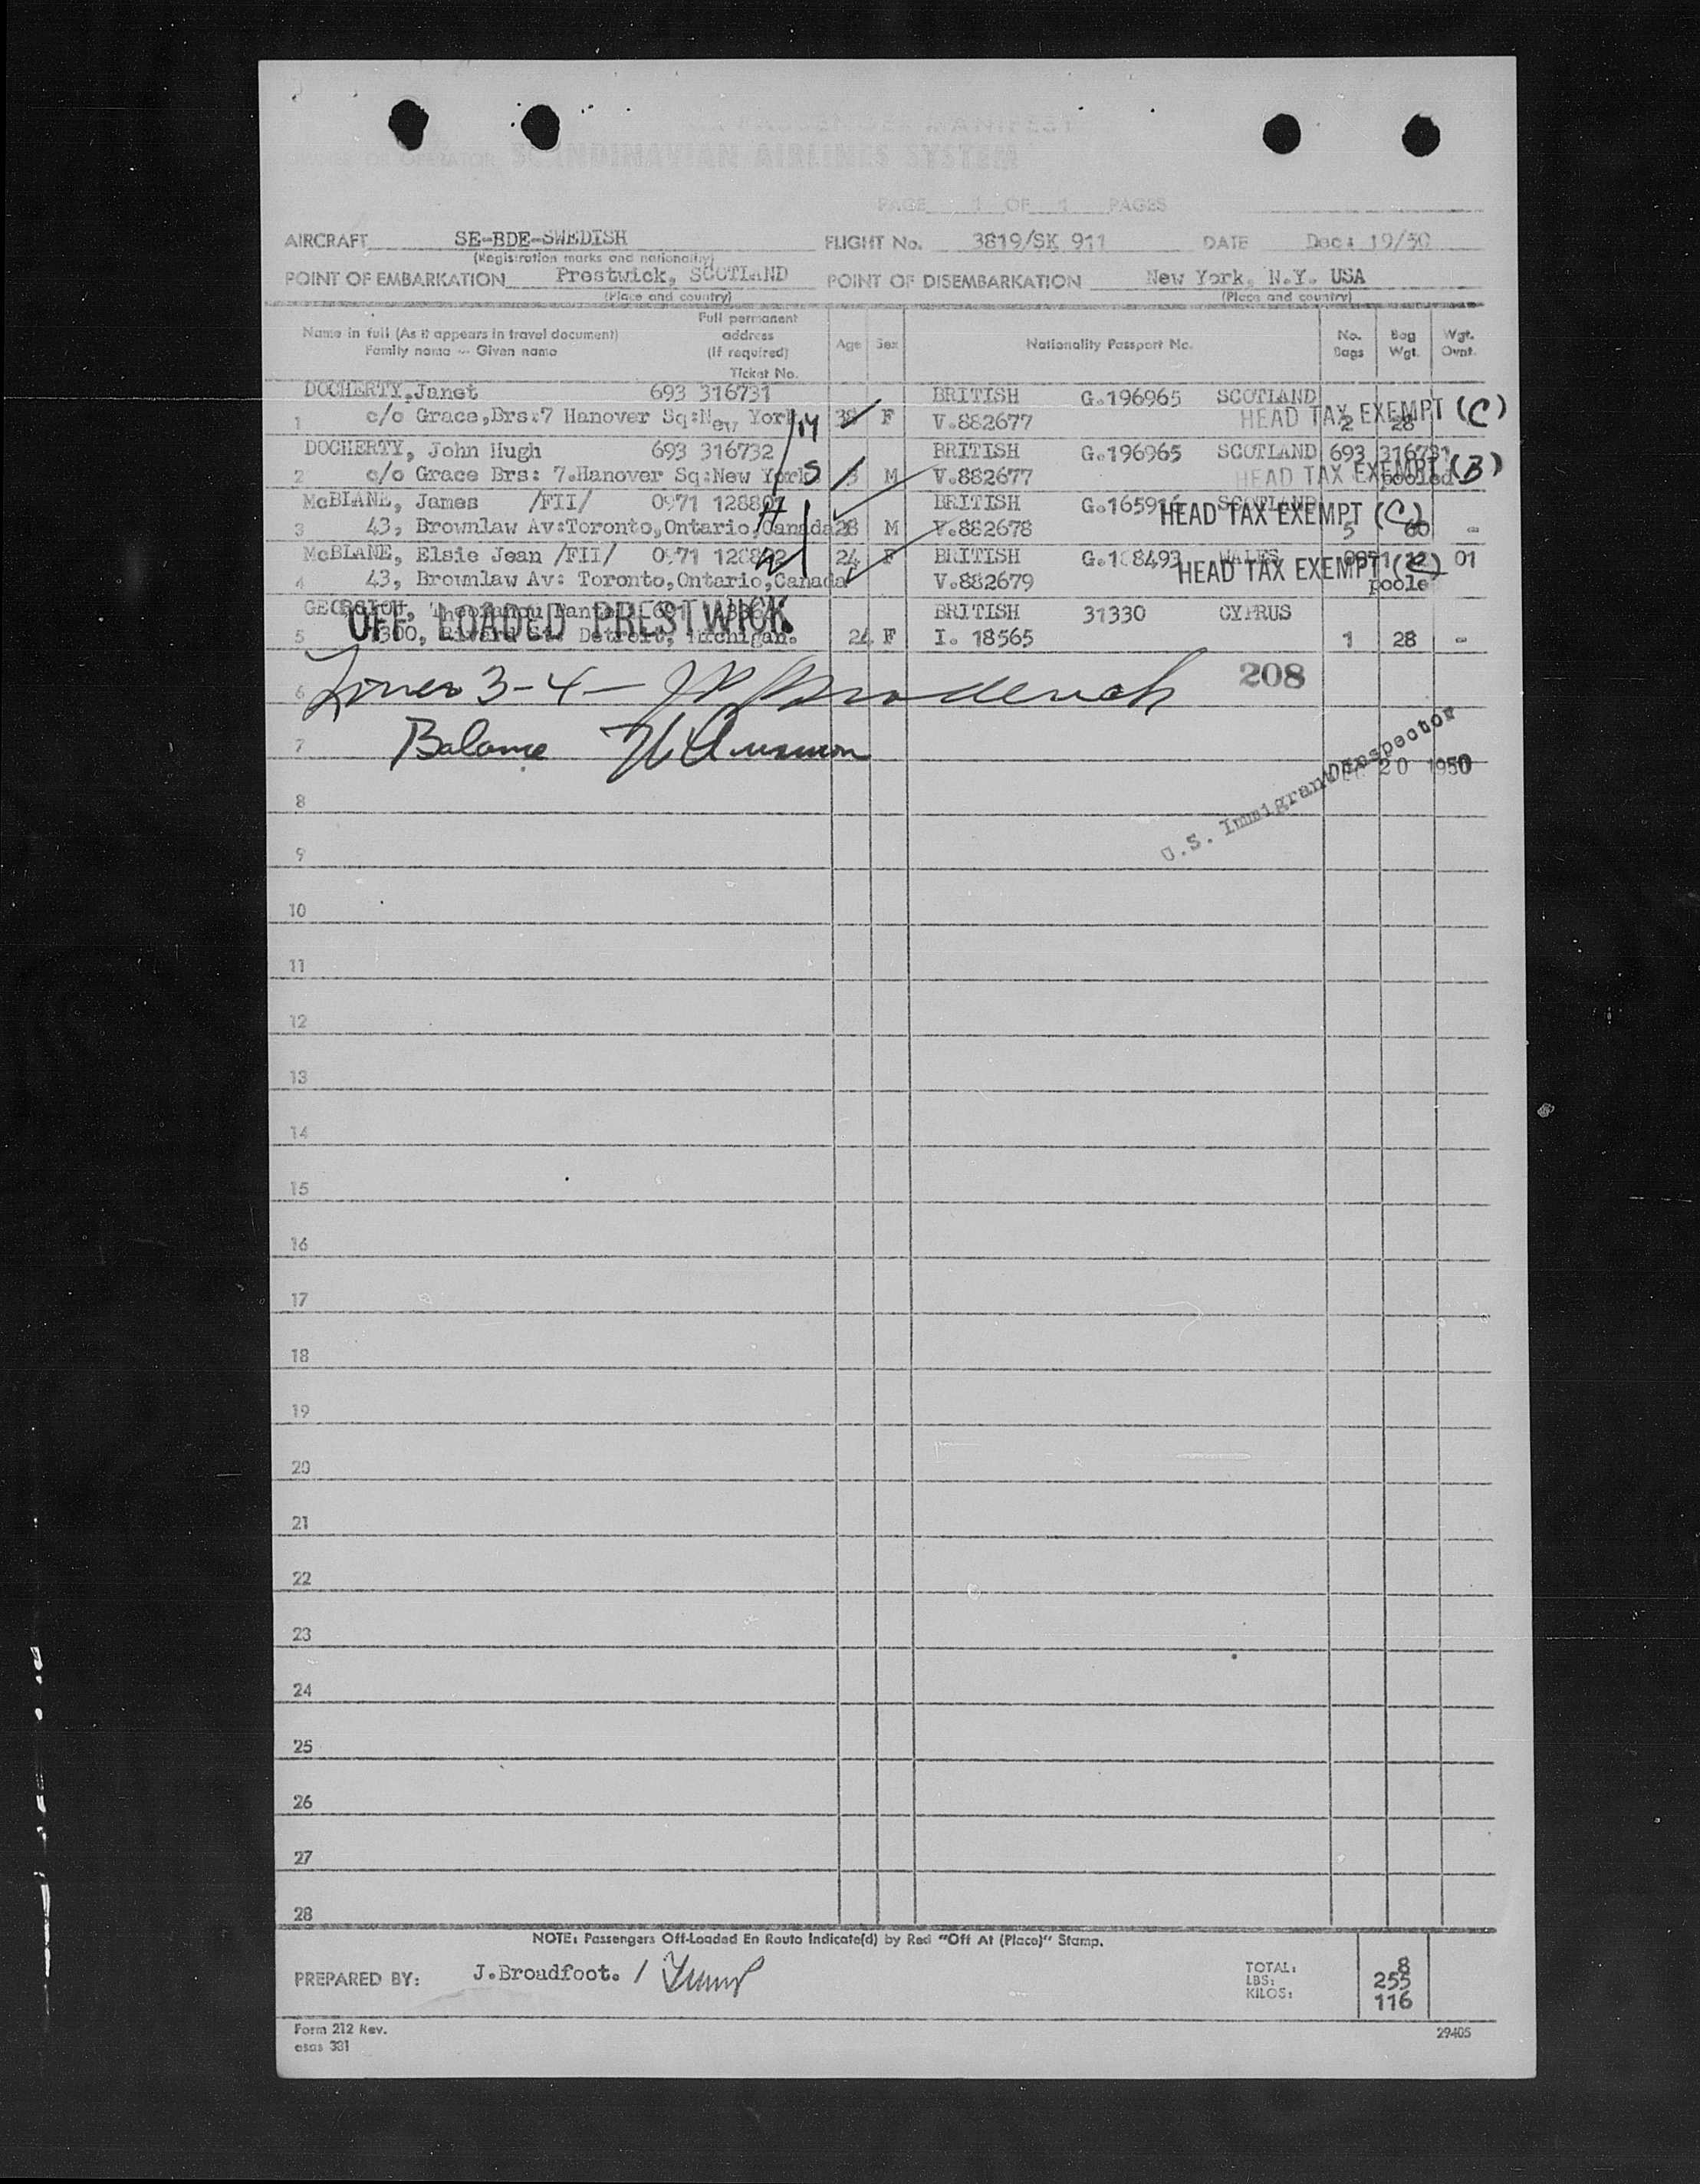 AIR PASSENGER MANIFEST
OWNER OR OPERATOR SCANDINAVIAN AIRLINES SYSTEM
PAGE 1 OF 1 PAGES
AIRCRAFT SE-BDE-SWEDISH FLIGHT No. 3819/SK 911 DATE Dec: 19/50
(Registration marks and nationality)
POINT OF EMBARKATION Prestwick, SCOTLAND POINT OF DISEMBARKATION New York, N.Y. USA
(Place and country) (Place and country)
Name in full (As it appears in travel document) Family name -- Given name Full permanent address (If required) Ticket No. Age Sex Nationality Passport No. No. Bags Bag Wgt. Wgt. Ovnt.
DOCHERTY,Janet 693 316731 BRITISH G.196965 SCOTLAND
1 c/o Grace,Brs:7 Hanover Sq:New York 38 F V.882677 HEAD TAX EXEMPT (C) 2 28
DOCHERTY, John Hugh 693 316732 BRITISH G.196965 SCOTLAND 693 316731
2 c/o Grace Brs: 7.Hanover Sq:New York 5 3 M V.882677 HEAD TAX EXEMPT (B) pooled
McBLANE, James /FII/ 0971 BRITISH SCOTLAND
3 43, Brownlaw Av:Toronto,Ontario,Canada 28 M V.882678 HEAD TAX EXEMPT (C) 5 60 -
McBLANE, Elsie Jean /FII/ 0971 24 F BRITISH WALES 01
4 43, Brownlaw Av: Toronto,Ontario,Canada V.882679 HEAD TAX EXEMPT (C) poole
GEORGIOU, BRITISH 31330 CYPRUS
OFF LOADED PRESTWICK
5 Detroit, Michigan. 24 F I. 18565 1 28 -
6 Lines 3-4- 208
7 Balance
U.S. Immigrant Inspector
DEC 20 1950
8
9
10
11
12
13
14
15
16
17
18
19
20
21
22
23
24
25
26
27
28
NOTE: Passengers Off-Loaded En Route Indicate(d) by Red "Off At (Place)" Stamp.
PREPARED BY: J.Broadfoot. /
TOTAL: 8
LBS: 255
KILOS: 116
Form 212 Rev. 29405
esas 331